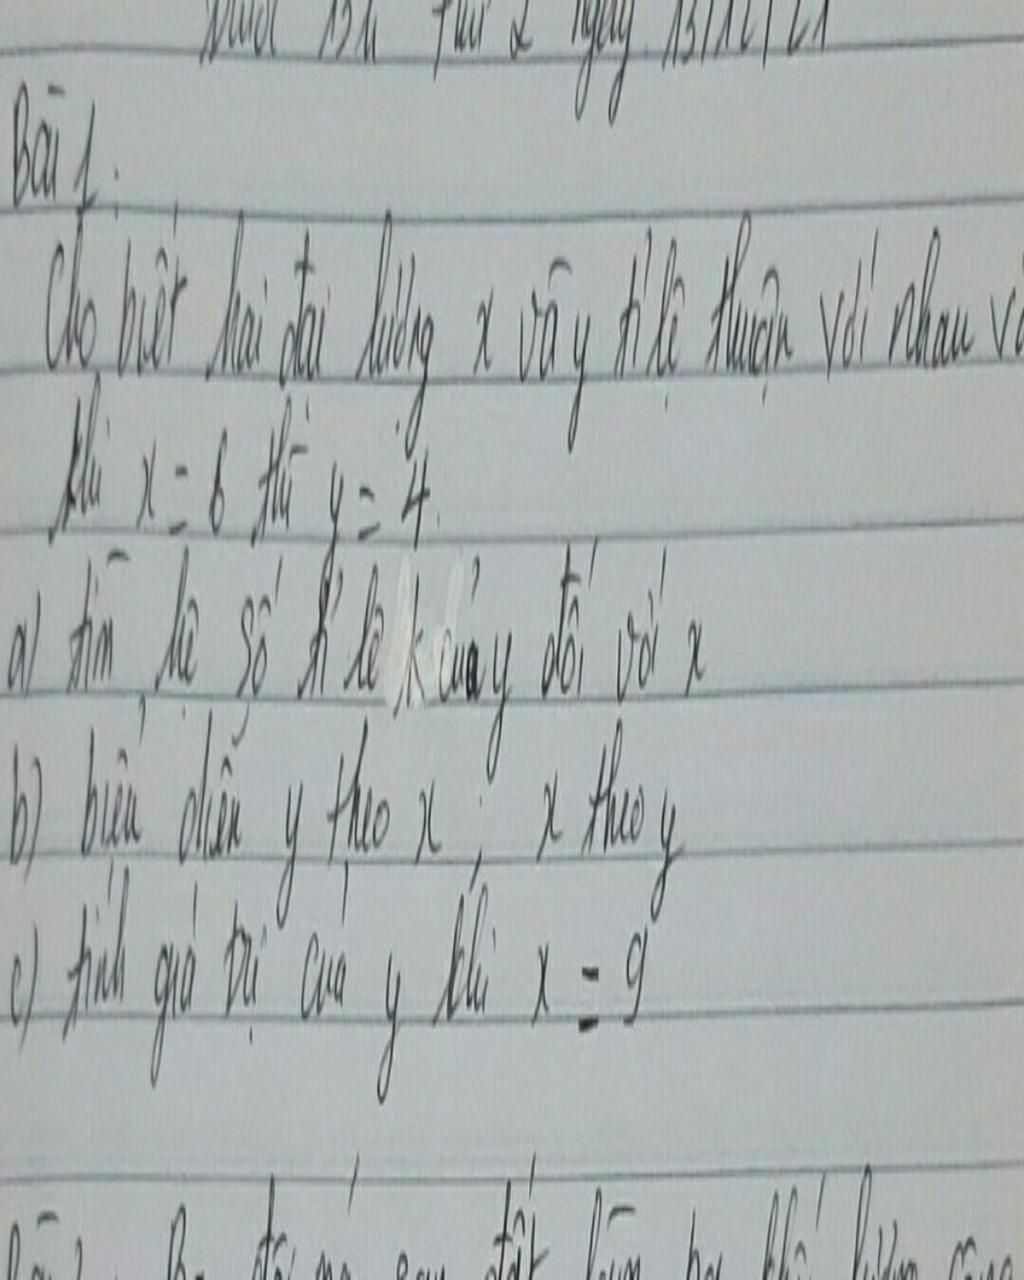 thứ 2 ngày 13/12/21
Bài 1:
Cho biết hai đại lượng x và y tỉ lệ thuận với nhau và
khi x = 6 thì y = 4.
a) tìm hệ số tỉ lệ k của y đối với x
b) biểu diễn y theo x ; x theo y
c) tính giá trị của y khi x = 9
Bài 2 đất làm ba khối lượng công